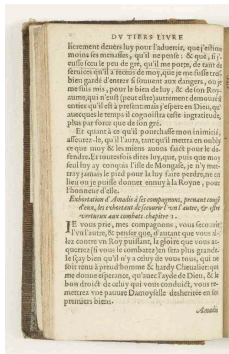 DV TIERS LIVRE
lierement deuers luy pour l'aduertir, que j'estime
moins ses menasses, qu'il ne pense: & que, si j'
eusse sceu le peu de gré, qu'il me porte, de tant de
seruices qu'il a receus de moy, que je me fusse tres-
bien gardé d'entrer si souuent aux dangers, ou je
me suis mis, pour le bien de luy, & de son Roy-
aume, qui n'eust (peut estre) autrement demouré si
entier qu'il est à present: mais j'espere en Dieu, qu'
auecques le temps il cognoistra ceste ingratitude,
plus par force que de son gré.
Et quant à ce qu'il pourchasse mon inimitié,
asseurez-le, qu'il l'aura, tant qu'il mettra en oubly
ce que moy & les miens auons faict pour le de-
fendre. Et toutesfois dites luy, que, puis que moy
seul luy ay conquis l'isle de Mongaze, je n'y met-
tray jamais le pied pour la luy faire perdre, ne en
lieu ou je puisse donner ennuy à la Royne, pour
l'honneur d'elle.
Exhortation d'Amadis à ses compagnons, prenant congé
d'eux, les exhortant de secourir l'vn l'autre, & estre
vertueux aux combats. chapitre 1.
JE vous prie, mes compagnons, vous secourir
l'vn l'autre, & penser que, d'autant que vous al-
lez contre vn Roy puissant, la gloire que vous ac-
querrez (si vous le combatez) en sera plus grande.
Ie sçay bien qu'il n'y a celuy de vous tous, qui ne
soit tenu à preud'homme & hardy Cheualier: qui
me donne esperance, qu'auec l'ayde de Dieu, & le
bon droict de celuy qui vous conduict, vous re-
mettrez vne pauure Damoyselle desheritée en ses
premiers biens.
Amadis